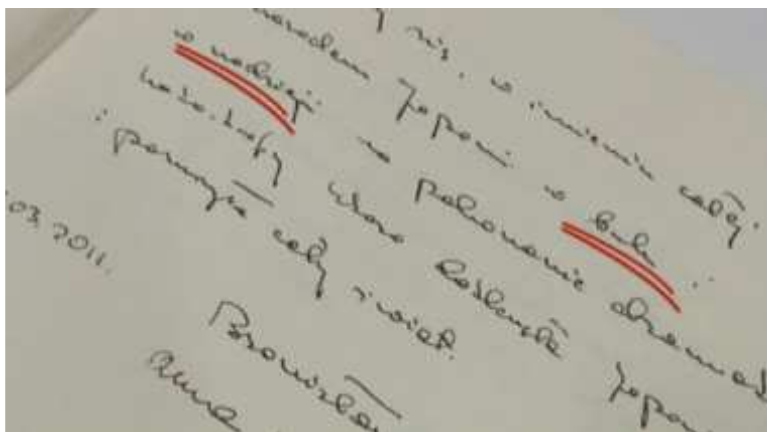 się, w imieniu całej
narodem Japonii w bulu i
w nadzieji na pokonanie
katastrofy która dotknęła Japoni
i poruszyła cały świat.
03.2011.
Bronisław
Anna